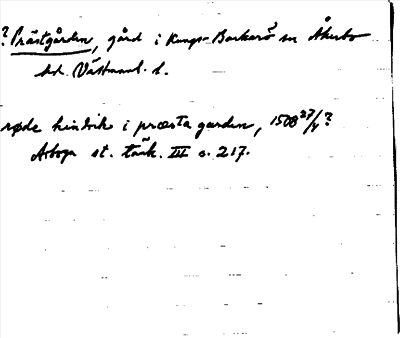 ? Prästgården, gård i Kungs-Barkarö sn Åkerbo
hd. Västmanl. l.
røde hindrik i præsta garden, 1508 27/4 ?
Arboga st. tänk. III s. 217.